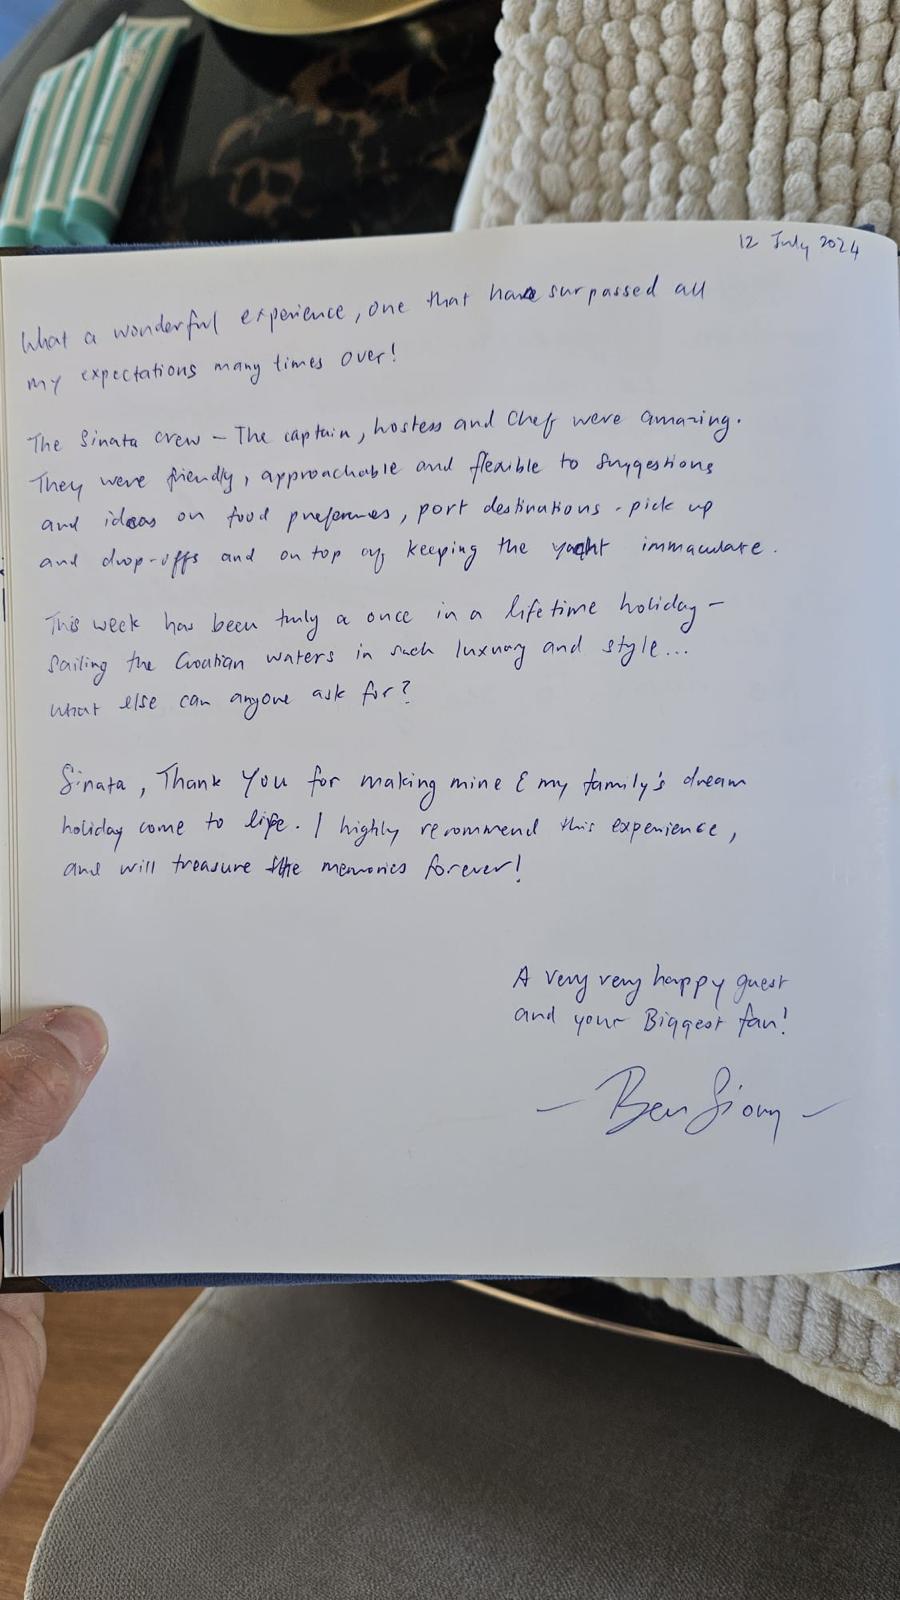 12 July 2024
What a wonderful experience, one that have surpassed all
my expectations many times over!
The Sinata crew – The captain, hostess and Chef were amazing.
They were friendly, approachable and flexible to suggestions
and ideas on food preferences, port destinations - pick up
and drop-offs and on top of keeping the yacht immaculate.
This week has been truly a once in a lifetime holiday –
Sailing the Croatian waters in such luxury and style...
What else can anyone ask for?
Sinata, Thank You for making mine & my family's dream
holiday come to life. I highly recommend this experience,
and will treasure the memories forever!
A very very happy guest
and your Biggest fan!
– Ben –